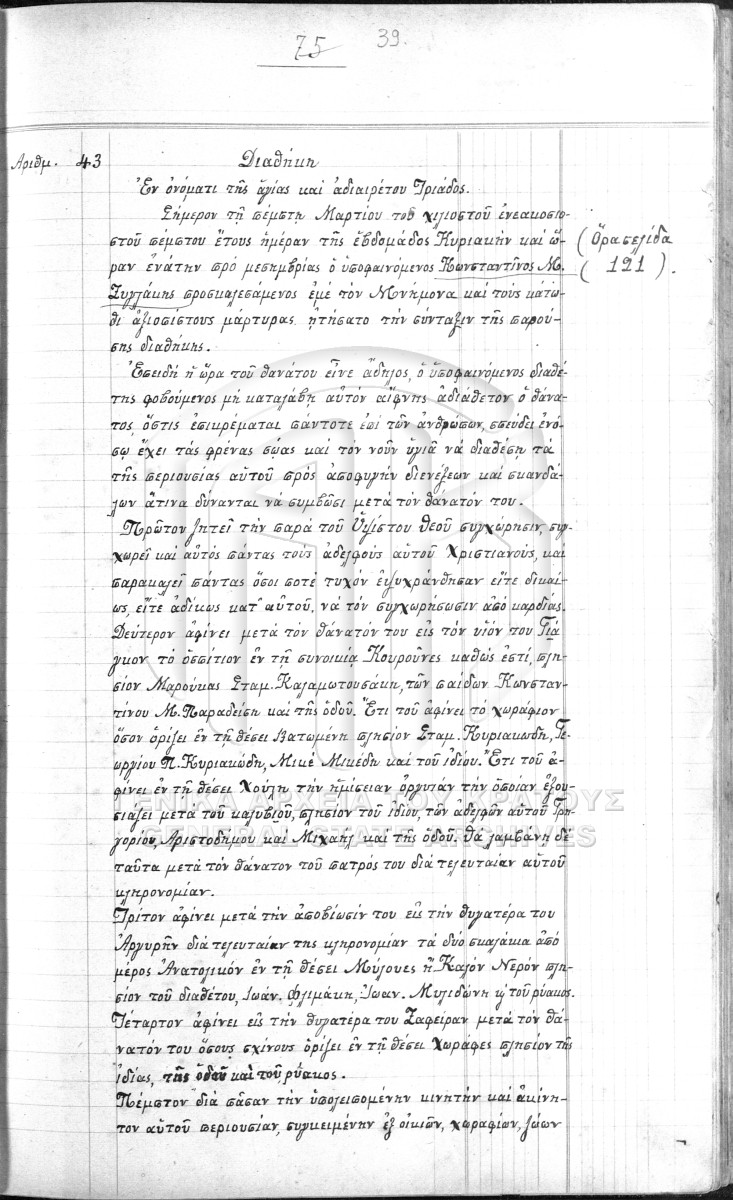 75 39.
Αριθμ. 43 Διαθήκη
Ἐν ὀνόματι τῆς ἁγίας καὶ ἀδιαιρέτου Τριάδος.
Σήμερον τῇ πέμπτῃ Μαρτίου τοῦ χιλιοστοῦ ἐνεακοσιο-
στοῦ πέμπτου ἔτους ἡμέραν τῆς ἑβδομάδος Κυριακὴν καὶ ὥ-
ραν ἐνάτην πρὸ μεσημβρίας ὁ ὑποφαινόμενος Κωνσταντῖνος Μ.
Ζυγλάκης προσκαλεσάμενος ἐμὲ τὸν Μνήμονα καὶ τοὺς κάτω-
θι ἀξιοπίστους μάρτυρας ᾐτήσατο τὴν σύνταξιν τῆς παρού-
σης διαθήκης.
(Ὅρα σελίδα
(121).
Ἐπειδὴ ἡ ὥρα τοῦ θανάτου εἶνε ἄδηλος, ὁ ὑποφαινόμενος διαθέ-
της φοβούμενος μὴ καταλάβῃ αὐτὸν αἴφνης ἀδιάθετον ὁ θάνα-
τος, ὅστις ἐπικρέμαται πάντοτε ἐπὶ τῶν ἀνθρώπων, σπεύδει ἐνό-
σῳ ἔχει τὰς φρένας σῴας καὶ τὸν νοῦν ὑγιᾶ νὰ διαθέσῃ τὰ
τῆς περιουσίας αὐτοῦ πρὸς ἀποφυγὴν διενέξεων καὶ σκανδά-
λων ἅτινα δύνανται νὰ συμβῶσι μετὰ τὸν θάνατόν του.
Πρῶτον ζητεῖ τὴν παρὰ τοῦ Ὑψίστου Θεοῦ συγχώρησιν, συγ-
χωρεῖ καὶ αὐτὸς πάντας τοὺς ἀδελφοὺς αὐτοῦ Χριστιανούς, καὶ
παρακαλεῖ πάντας ὅσοι ποτὲ τυχὸν ἐψυχράνθησαν εἴτε δικαί-
ως, εἴτε ἀδίκως κατ' αὐτοῦ, νὰ τὸν συγχωρήσωσιν ἀπὸ καρδίας.
Δεύτερον ἀφίνει μετὰ τὸν θάνατόν του εἰς τὸν υἱόν του Γιά-
γκον τὸ ὁσπίτιον ἐν τῇ συνοικίᾳ Κουρούνες καθὼς ἐστί, πλη-
σίον Μαρούκας Σταμ. Καλαμωτουσάκη, τῶν παίδων Κωνσταν-
τίνου Μ. Παραδείση καὶ τῆς ὁδοῦ. Ἔτι τοῦ ἀφίνει τὸ χωράφιον
ὅσον ὁρίζει ἐν τῇ θέσει Βατωμένη πλησίον Σταμ. Κυριακώδη, Γε-
ωργίου Π. Κυριακώδη, Μικὲ Μικέδη καὶ τοῦ ἰδίου. Ἔτι τοῦ ἀ-
φίνει ἐν τῇ θέσει Χούλη τὴν ἡμίσειαν ὀργυιὰν τὴν ὁποίαν ἐξου-
σιάζει μετὰ τοῦ καλυβιοῦ, πλησίον τοῦ ἰδίου, τῶν ἀδελφῶν αὐτοῦ Γρη-
γορίου, Αριστοδήμου καὶ Μιχαὴλ καὶ τῆς ὁδοῦ. Θὰ λαμβάνῃ δὲ
ταῦτα μετὰ τὸν θάνατον τοῦ πατρός του διὰ τελευταίαν αὐτοῦ
κληρονομίαν.
Τρίτον ἀφίνει μετὰ τὴν ἀποβίωσίν του εἰς τὴν θυγατέρα του
Ἀργυρῆν διὰ τελευταίαν της κληρονομίαν τὰ δύο σκαλάκια ἀπὸ
μέρος Ἀνατολικὸν ἐν τῇ θέσει Μύλουνες ἢ Καλὸν Νερὸν πλη-
σίον τοῦ διαθέτου, Ἰωάν. Φλιμάκη, Ἰωαν. Μυλιδώνη κ τοῦ ρύακος.
Τέταρτον ἀφίνει εἰς τὴν θυγατέρα του Ζαφείραν μετὰ τὸν θά-
νατόν του ὅσους σχίνους ὁρίζει ἐν τῇ θέσει Χωράφες πλησίον τῆς
ἰδίας, τῆς ὁδοῦ καὶ τοῦ ρύακος.
Πέμπτον διὰ πᾶσαν τὴν ὑπολειπομένην κινητὴν καὶ ἀκίνη-
τον αὐτοῦ περιουσίαν, συγκειμένην ἐξ οἰκιῶν, χωραφίων, ζώων
ΓΕΝΙΚΑ ΑΡΧΕΙΑ ΤΟΥ ΚΡΑΤΟΥΣ
GENERAL STATE ARCHIVES